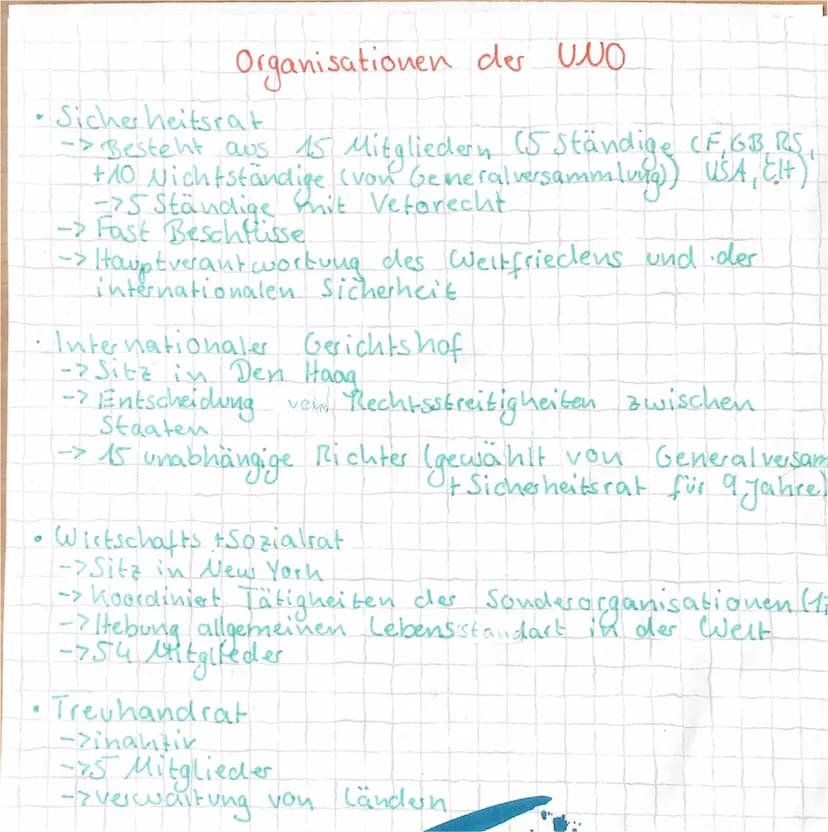 Organisationen der UNO
• Sicherheitsrat
-> Besteht aus 15 Mitgliedern (5 Ständige (F, GB, RS,
+10 Nichtständige (von Generalversammlung)) USA, CH)
-> 5 Ständige mit Vetorecht
-> Fast Beschlüsse
-> Hauptverantwortung des Weltfriedens und der
internationalen Sicherheit
• Internationaler Gerichtshof
-> Sitz in Den Haag
-> Entscheidung von Rechtsstreitigheiten zwischen
Staaten
-> 15 unabhängige Richter (gewählt von Generalversam
+ Sicherheitsrat für 9 Jahre)
• Wirtschafts + Sozialrat
-> Sitz in New York
-> Koordiniert Tätigheiten der Sonderorganisationen
-> Hebung allgemeinen Lebensstandart in der Welt
-> 54 Mitglieder
• Treuhandrat
-> inaktiv
-> 5 Mitglieder
-> verwaltung von Ländern